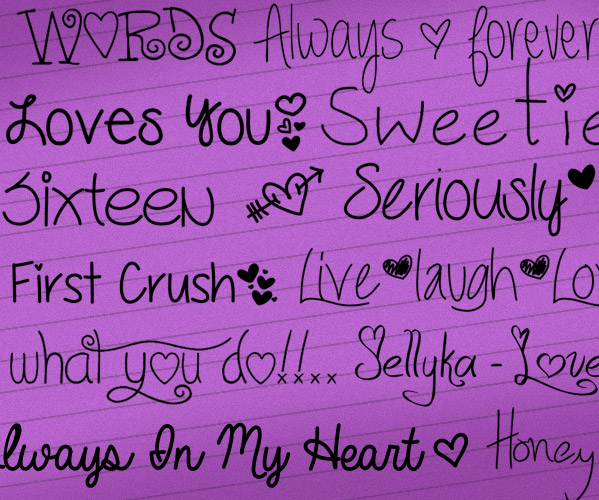 WORDS Always ♡ forever
Loves You Sweetie
Sixteen Seriously
First Crush Live laugh Lo
what you do!! xxxx Jellyka - Love
lways In My Heart Honey